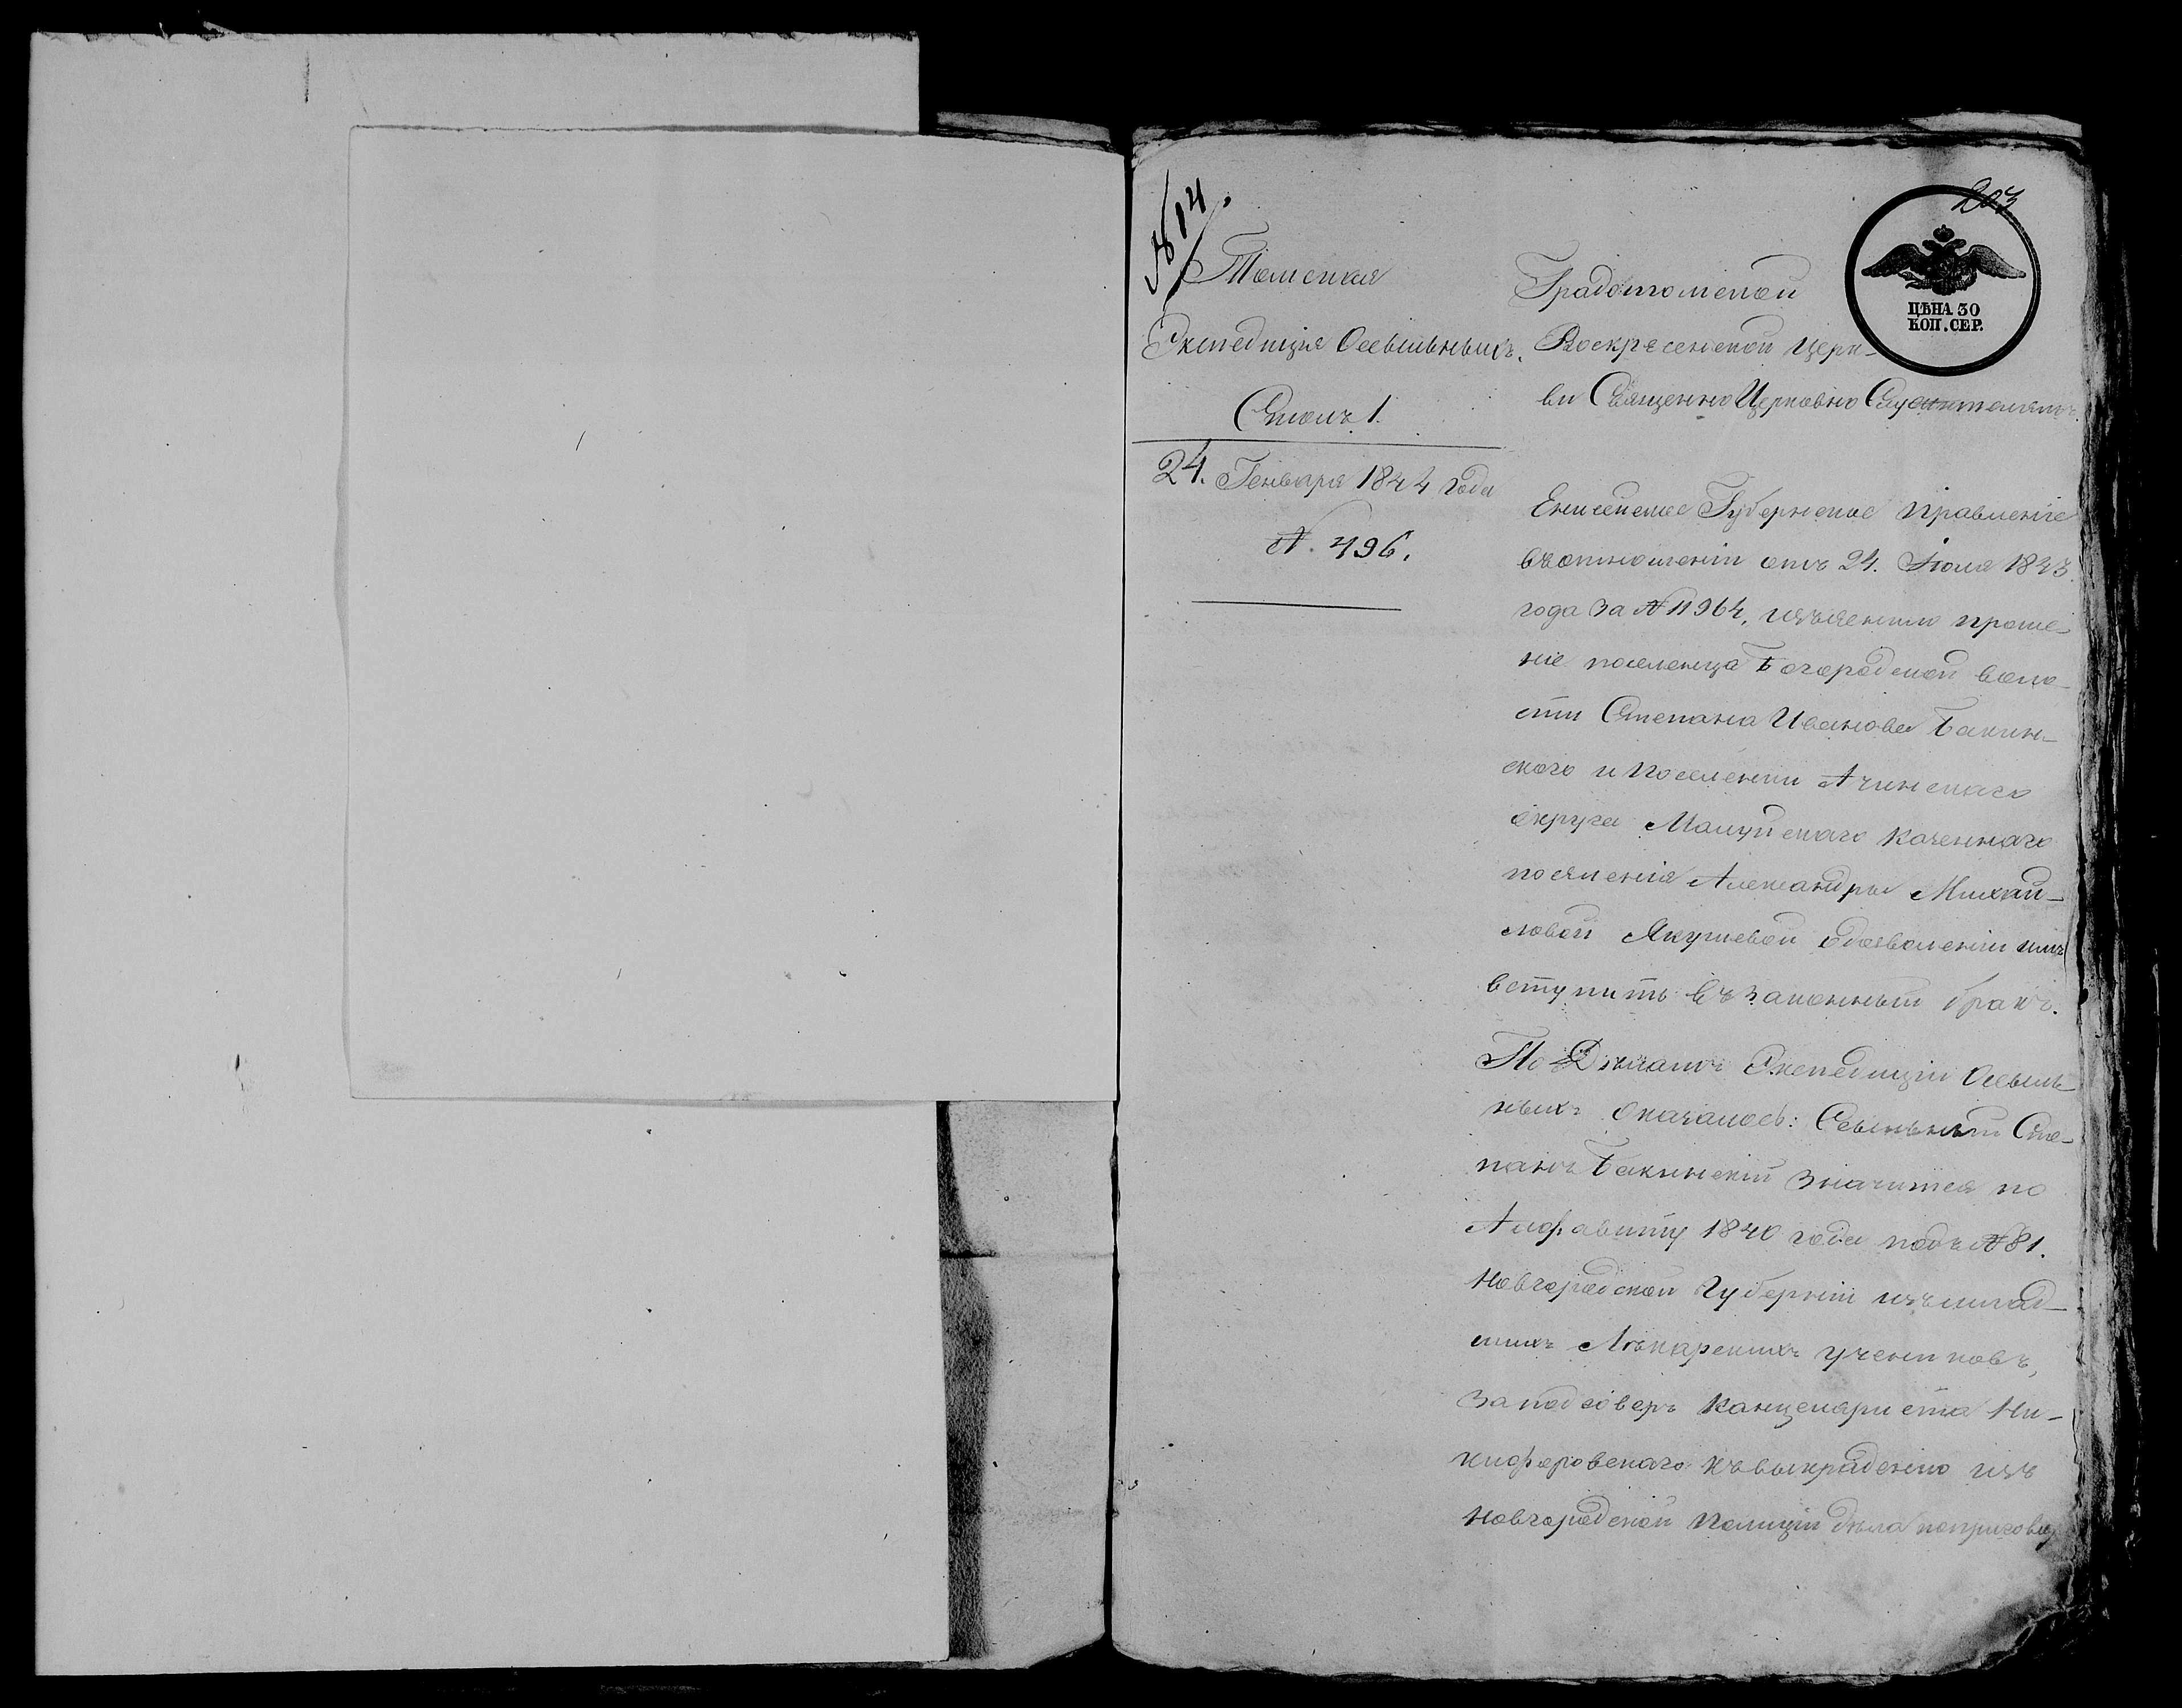 № 14.
203
Томская
Экспедиція Ссыльныхъ.
Столъ 1.
24. Генваря 1844 года
№. 496.
ЦѢНА 30
КОП. СЕР.
Градотомской
Воскресенской Церк-
ви Священно Церковно Служителямъ.
Енисейское Губернское Правленіе
въ отношеніи отъ 24. Іюля 1843.
года за № 11964, изъяснило проше-
ніе поселенца Богородской воло-
сти Степана Иванова Бакин-
скаго и поселенки Ачинскаго
округа казеннаго
поселенія Александры Михай-
ловой Якушевой о дозволеніи имъ
вступить въ законный бракъ.
По Дѣламъ Экспедиціи Ссыль-
ныхъ оказалось: Ссыльный Сте-
панъ Бакинскій значится по
Алфавиту 1840 года подъ № 81.
Новгородской Губерніи изъ млад-
шихъ Лѣкарскихъ учениковъ,
за подговоръ Канцеляриста Ни-
кифоровскаго къ выкраденію изъ
Новгородской Полиціи дѣла по приговору